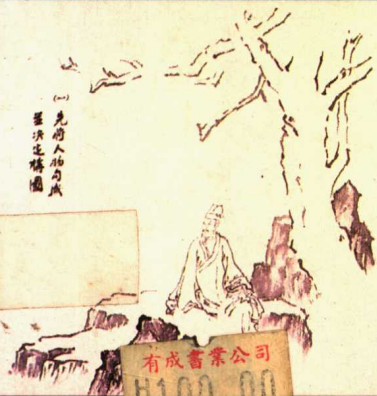 (一)先將人物勾成
並決定構圖
有成書業公司
H100.00